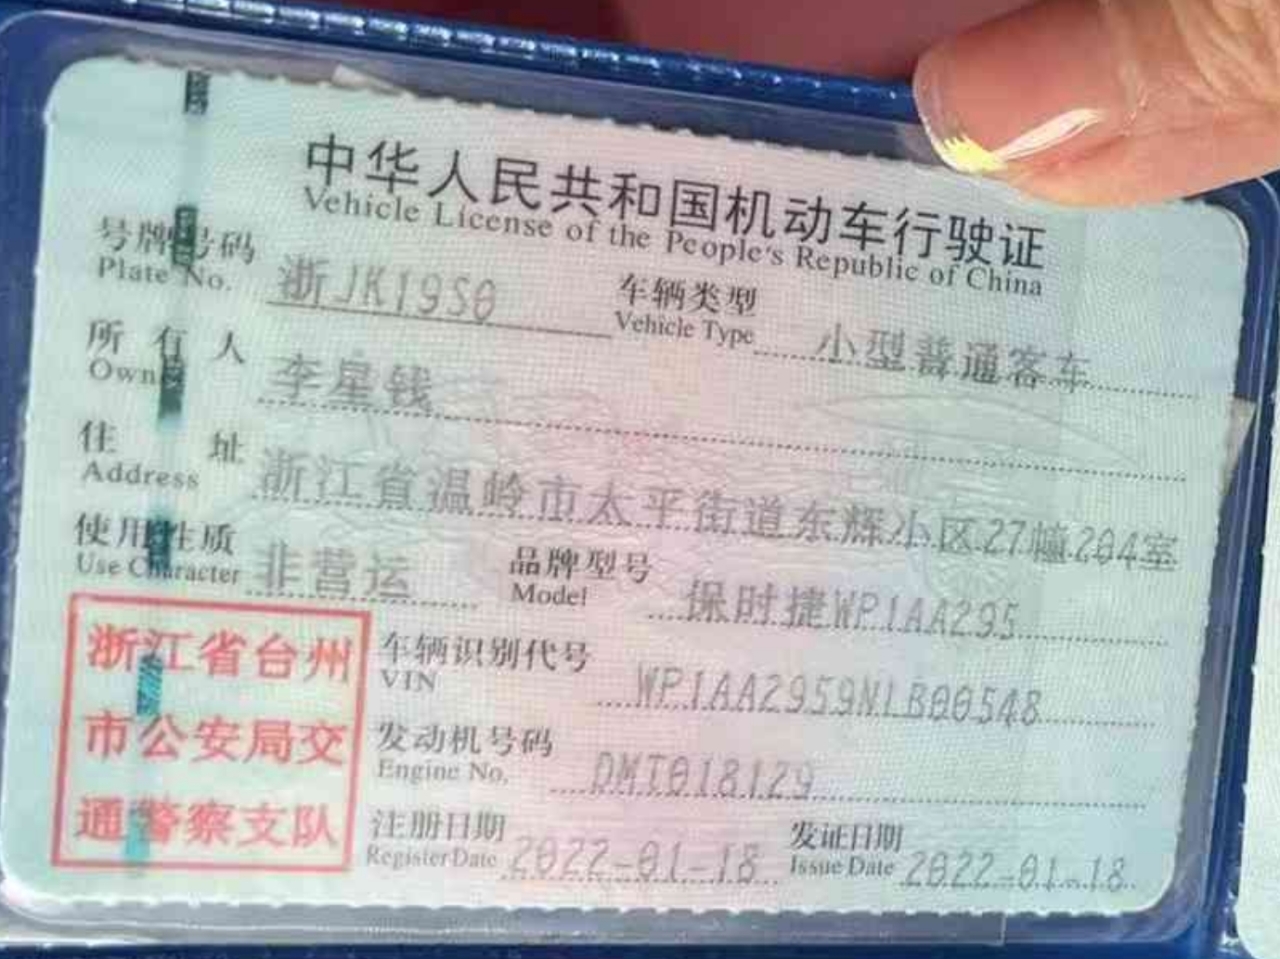 中华人民共和国机动车行驶证
Vehicle License of the People's Republic of China
号牌号码 浙JK19S0 车辆类型 小型普通客车
Plate No. Vehicle Type
所有人 李星钱
Owner
住址 浙江省温岭市太平街道东辉小区27幢204室
Address
使用性质 非营运 品牌型号 保时捷WP1AA295
Use Character Model
浙江省台州
市公安局交
通警察支队
车辆识别代号 WP1AA2959NLB00548
VIN
发动机号码 DMT018129
Engine No.
注册日期 2022-01-18 发证日期 2022-01-18
Register Date Issue Date